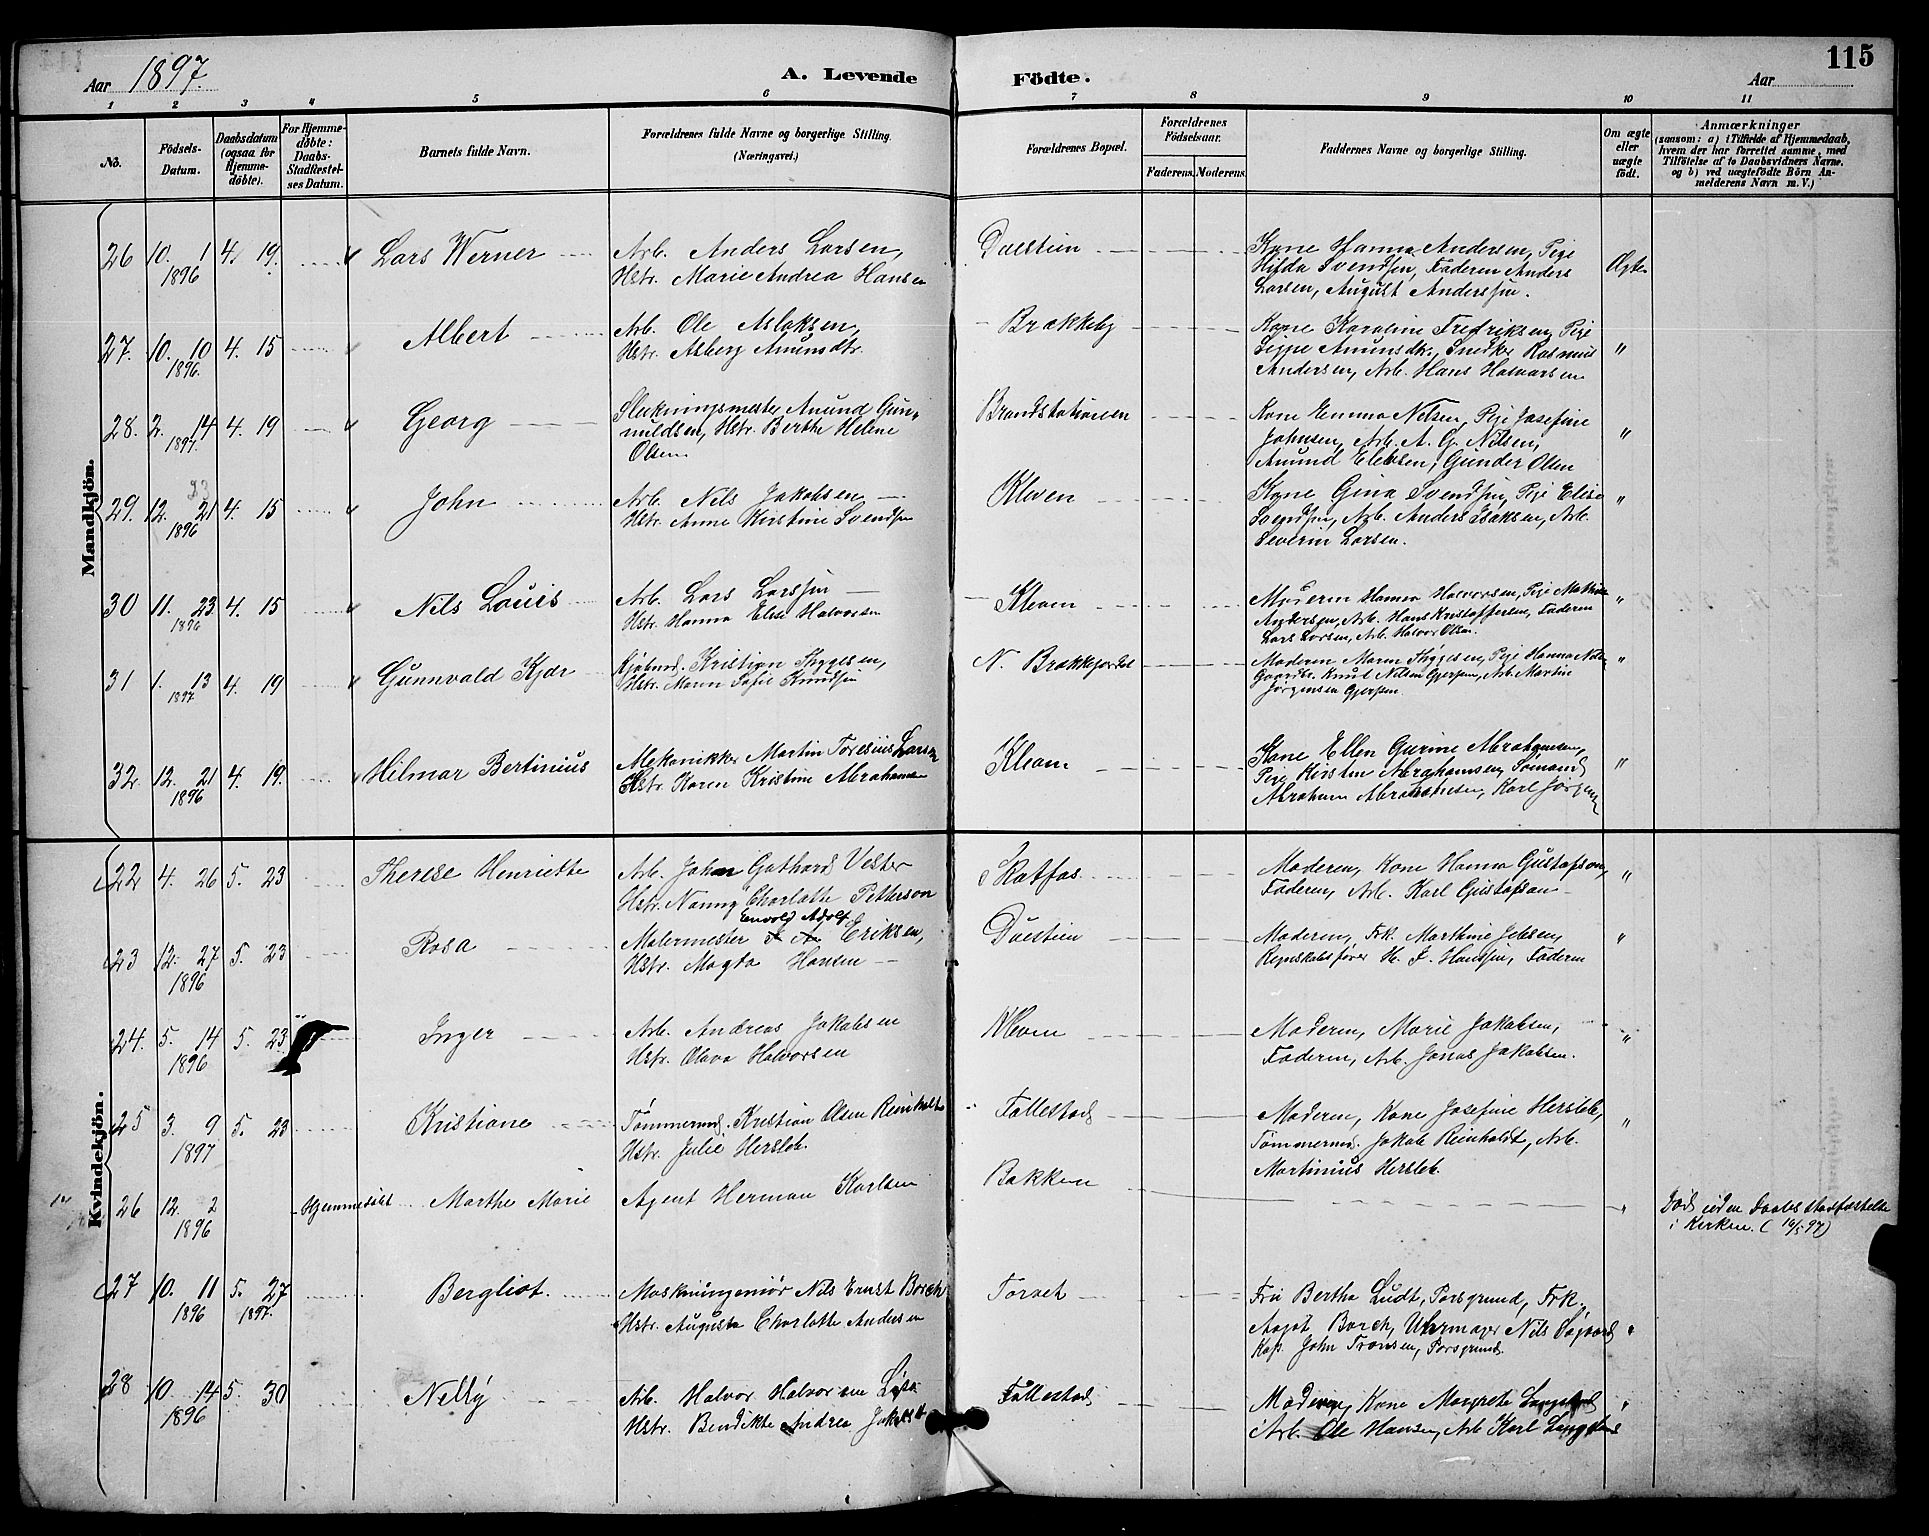 Aar 1897. A. Levende Födte. Aar 115
1 2 3 4 5 6 7 8 9 10 11
No. Födsels-Datum. Daabsdatum (ogsaa for Hjemmedöbte). For Hjemmedöbte: Daabs-Stadfæstelses Datum. Barnets fulde Navn. Forældrenes fulde Navne og borgerlige Stilling. (Næringsvei.) Forældrenes Bopæl. Forældrenes Födselsaar. Faderens. Moderens. Faddernes Navne og borgerlige Stilling. Om ægte eller uægte födt. Anmærkninger (saasom: a) i Tilfælde af Hjemmedaab, hvem der har forrettet samme, med Tilföielse af to Daabsvidners Navne, og b) ved uægtefödte Börn Anmelderens Navn m. V.)
Mandkjön.
26 10. 1 1896 4. 19. Lars Werner Arb. Anders Larsen, Dalstien Kone Hanna Andersen, Pige
Hstr. Marie Andrea Hansen Hilda Svendsen, Faderen Anders Ægte
Larsen, August Anderssen.
27. 10. 10 1896. 4. 15 Albert Arb. Ole Aslaksen, Brækkeby Kone Karoline Fredriksen, Pige
Hstr. Asberg Amundsdtr. Amundsdtr., Snedker Rasmus "
Andersen, Arb. Hans Halvorsen
28. 2. 14 1897. 4. 19 Georg Slukningsmester Amund Gun- Brandstationen Kone Emma Nilsen, Pige Josefine
nuldsen, Hstr. Berthe Helene Johnsen, Arb. A. G. Nilsen, "
Olsen Amund Olsen, Gunder Olsen
29. 12. 21 23 1896 4. 15 John Arb. Nils Jakobsen Kleven Kone Gina Svendsen, Pige Elise "
Hstr. Anne Kirstine Svendsen Svendsen, Arb. Anders Isaksen, Arb.
Severin Larsen.
30 11. 23. 1896 4. 15 Nils Louis Arb. Lars Larssen Kleven Moderen Hanna Halvorsen, Pige "
Hstr. Hanna Elise Halvorsen Andersen, Arb. Hans Kristoffersen, Faderen
Lars Larsen, Arb. Halvor Olsen
31 1. 13 1897 4. 19 Gunnvald Kjær Kjøbmd. Kristian Thygesen, N. Brækkejordet Moderen Maren Thygesen, Pige Hanna "
Hstr. Maren Sofie Knudsen Gaardbr. Knud Nilsen Gjerpen, Arb. Martin
Jørgensen Gjerpen.
32. 12. 21 1896 4. 19. Hilmar Bertinius Mekanikker Martin Toresius Larsen Kleven Kone Ellen Gurine Abrahamsen,
Hstr. Karen Kristine Abrahamsen Pige Kirsten Abrahamsen, Sømand "
Abraham Abrahamsen, Karl Jørgensen
Kvindekjön.
22 4. 26 5. 23 Therese Henriette Arb. Johan Gothard Vester Skotfos Moderen, Kone Hanna Gustafson, "
Hstr. Nanny Charlotte Petterson Faderen, Arb. Karl Gustafson
23 12. 27 1896 5. 23 Rosa Malermester Envold Adolf Eriksen, Duestien Moderen, Frk. Marthine Jebsen, "
Hstr. Magda Hansen Regnskabsfører H. J. Hanssen, Faderen
24. 5. 14 1896 5. 23 Inger Arb. Andreas Jakobsen Kleven Moderen, Marie Jakobsen, "
Hstr. Olava Halvorsen Faderen, Arb. Jonas Jakobsen.
25 3. 9 1897 5. 23 Kristiane Tømmermd. Kristian Olsen Reinholt Follestad Moderen, Kone Josefine Hersleb, "
Hstr. Julie Hersleb. Tømmermd. Jakob Reinholdt, Arb.
Martinius Hersleb.
26 12. 2 1896 Hjemmedøbt Marthe Marie Agent Herman Karlsen Bakken " Død uden Daabsstadfæstelse
i Kirken. (10/5 97)
27 10. 11 1896 5. 27 1897. Bergliot. Maskiningeniør Nils Ernst Borch Torvet Fru Bertha Ludt, Porsgrund, Frk.
Hstr. Augusta Charlotte Andersen Aagot Borch, Uhrmager Nils "
Kap. John Fransen, Porsgrund.
28 10. 14 1896 5. 30 Nelly Arb. Halvor Halvorsen Follestad Moderen, Kone Margrete Langstad "
Hstr. Bendikte Andrea Arb. Ole Hansen, Arb Karl